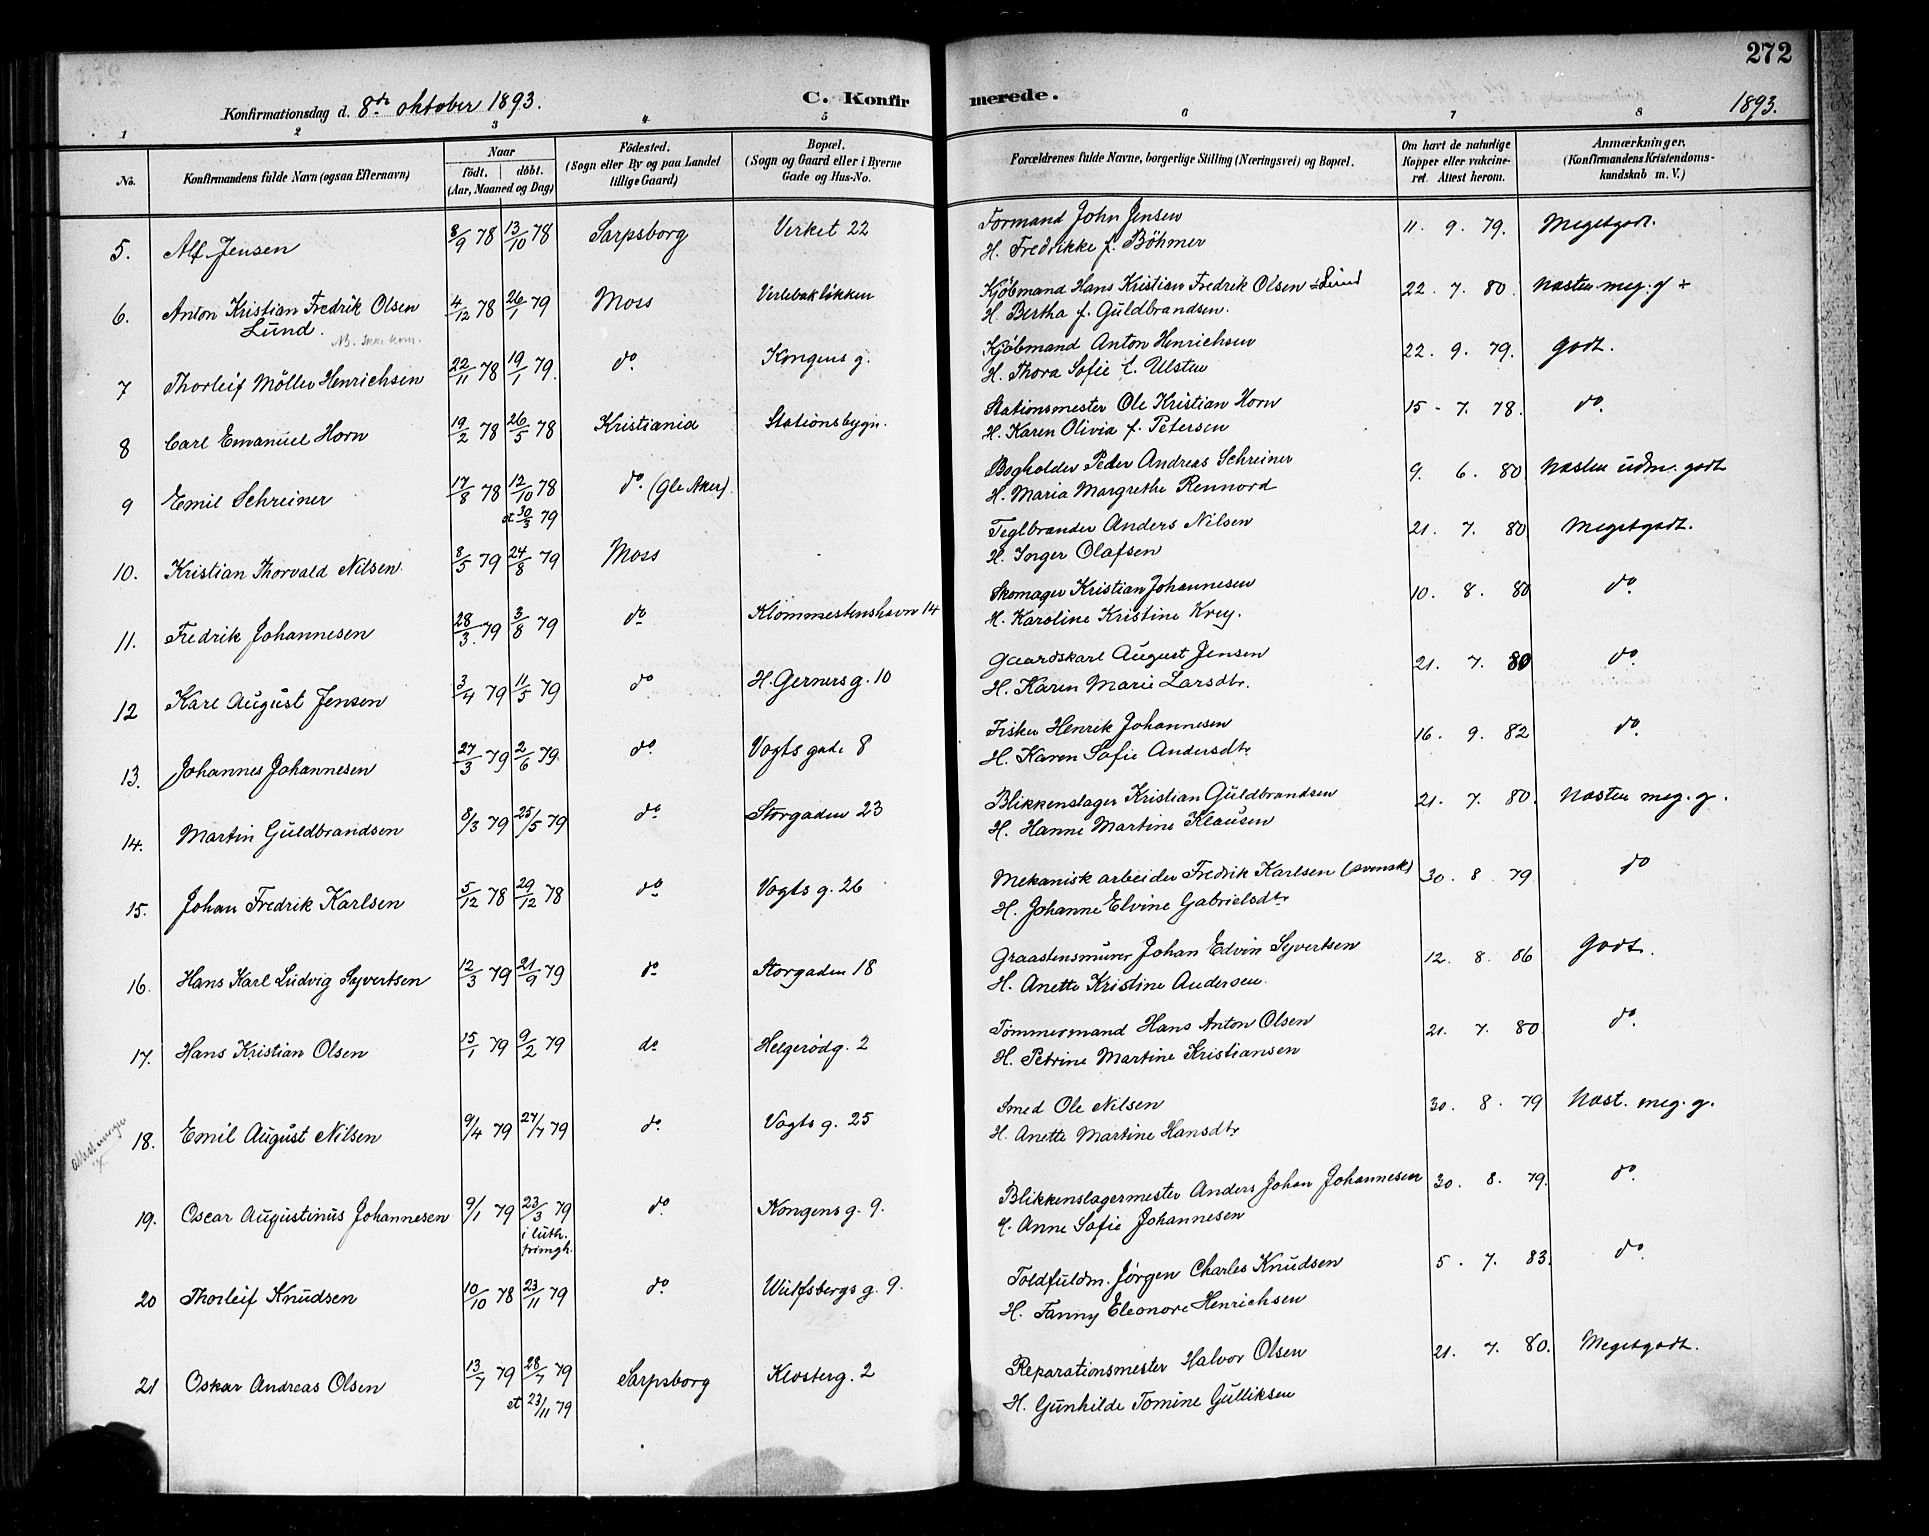 272
Konfirmationsdag d. 8de oktober 1893. C. Konfirmerede. 1893.
1 2 3 4 5 6 7 8
No. Konfirmandens fulde Navn (ogsaa Efternavn) Naar født. døbt. (Aar, Maaned og Dag) Födested. (Sogn eller By og paa Landet tillige Gaard) Bopæl. (Sogn og Gaard eller i Byerne Gade og Hus-No.) Forældrenes fulde Navne, borgerlige Stilling (Næringsvei) og Bopæl. Om havt de naturlige Kopper eller vakcineret. Attest herom. Anmærkninger. (Konfirmandens Kristendomskundskab m. V.)
5. Alf Jensen 8/9 78 13/10 78 Sarpsborg Verket 22 Formand John Jensen 11. 9. 79. Megetgodt.
H. Fredrikke f. Böhmer
6. Anton Kristian Fredrik Olsen 4/12 78 26/1 79 Moss Verlebakløkken Kjøbmand Hans Kristian Fredrik Olsen Lund 22. 7. 80. Næsten meg. g +
Lund. H. Bertha f. Guldbrandsen.
NB. Ikke kom.
7 Thorleif Möller Henrichsen 22/11 78 19/1 79. do. Kongens g. Kjøbmand Anton Henrichsen 22. 9. 79. Godt.
H. Thora Sofie f. Ulsten
8 Carl Emanuel Horn 19/2 78 26/5 78 Kristiania Stationsbygn. Stationsmester Ole Kristian Horn 15 - 7. 78. do.
H. Karen Olivia f. Petersen
9 Emil Schreiner 17/8 78 12/10 78 do. (Gle Aker). Bogholder Peder Andreas Schreiner 9. 6. 80 Næsten udm. godt
et 30/3 79 H. Maria Margrethe Rennord
10. Kristian Thorvald Nilsen 8/5 79 24/8 79 Moss Teglbrænder Anders Nilsen 21. 7. 80 Megetgodt.
H. Inger Olafsen
11. Fredrik Johannesen 28/3 79 3/8 79 do Klommestenshavn 14 Skomager Kristian Johannesen 10. 8. 80 do.
H. Karoline Kristine Krey.
12 Karl August Jensen 3/4 79 11/5 79 do H. Gerners g. 10 Gaardskarl August Jensen 21. 7. 80 do.
H. Karen Marie Larsdtr.
13. Johannes Johannesen 27/3 79 2/6 79 do. Vogts gade 8 Fisker Henrik Johannesen 16. 9. 82 do.
H. Karen Sofie Andersdtr
14. Martin Guldbrandsen 8/3 79 25/5 79 do. Storgaden 23 Blikkenslager Kristian Guldbrandsen 21. 7. 80. Næsten meg. g.
H. Hanne Martine Klausen
15. Johan Fredrik Karlsen 5/12 78 29/12 78 do Vogts g. 26 Mekanisk arbeider Fredrik Karlsen (svensk) 30. 8 79. do
H. Johanne Elvine Gabrielsdtr
16. Hans Karl Ludvig Syvertsen 12/3 79 21/9 79 do Storgaden 18 Graastensmurer Johan Edvin Syvertsen 12. 8. 86 Godt.
H. Anette Kristine Andersen.
17. Hans Kristian Olsen 15/1 79 9/2 79 do Helgerödg. 2 Tömmermand Hans Anton Olsen 21. 7. 80. do.
H. Petrine Martine Kristiansen
18. Emil August Nilsen 9/4 79 27/7 79 do. Vogts g. 25 Smed Ole Nilsen 30. 8. 79 Næst. meg. g.
H. Anette Martine Hansdtr
19. Oscar Augustinus Johannesen 9/1 79 23/3 79 do. Kongens g. 9. Blikkenslagermester Anders Johan Johannesen 30. 8. 79. do.
i luth. frimgh. H. Anne Sofie Johannesen
20 Thorleif Knudsen 10/10 78 23/11 79 do. Wulfsbergs g. 9. Toldfuldm. Jørgen Charles Knudsen 5. 7. 83. do.
H. Fanny Eleonore Henrichsen
21 Oskar Andreas Olsen 13/7 79 28/7 79 Sarpsborg Klosterg. 2 Reparationsmester Halvor Olsen 21. 7. 80. Megetgodt.
et 23/11 79 H. Gunhilde Tomine Gulliksen